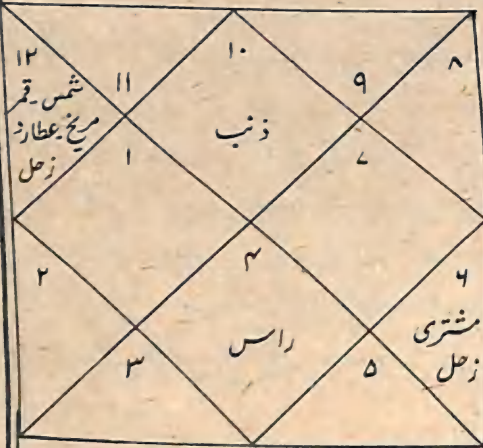 ۱۲
شمس قمر
مریخ عطارد
زحل
۱۱
۱۰
ذنب
۹
۸
۱
۷
۲
۴
راس
۳
۵
۶
مشتری
زحل